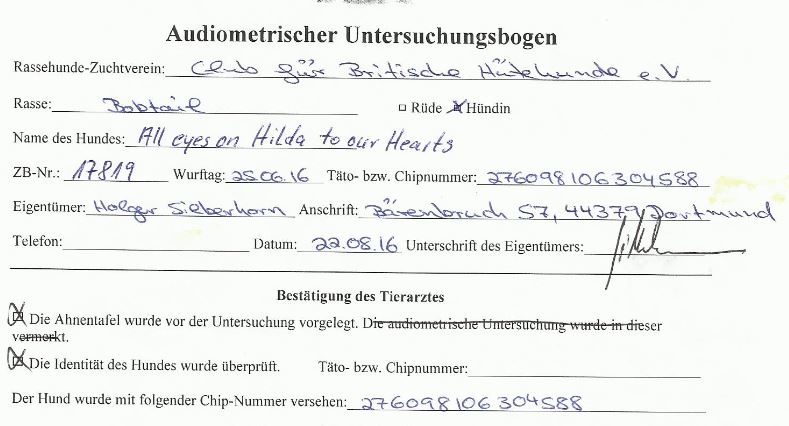 Audiometrischer Untersuchungsbogen
Rassehunde-Zuchtverein: Club für Britische Hütehunde e.V.
Rasse: Bobtail □ Rüde ☒ Hündin
Name des Hundes: All eyes on Hilda to our Hearts
ZB-Nr.: 17819 Wurftag: 25.06.16 Täto- bzw. Chipnummer: 276098106304588
Eigentümer: Holger Sieberhorn Anschrift: Bärenbruch 57, 44379 Dortmund
Telefon: Datum: 22.08.16 Unterschrift des Eigentümers:
Bestätigung des Tierarztes
☒ Die Ahnentafel wurde vor der Untersuchung vorgelegt. Die audiometrische Untersuchung wurde in dieser
vermerkt.
☒ Die Identität des Hundes wurde überprüft. Täto- bzw. Chipnummer:
Der Hund wurde mit folgender Chip-Nummer versehen: 276098106304588